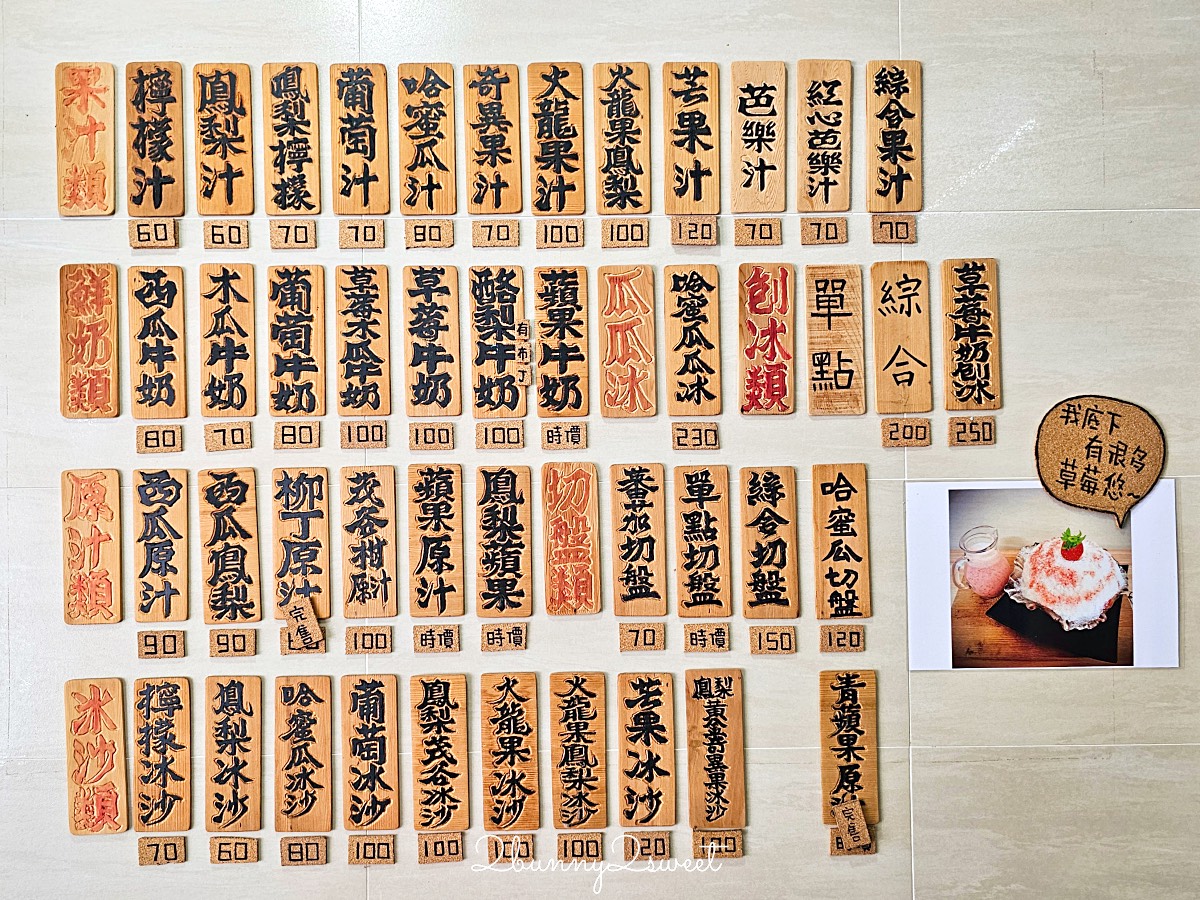 果汁類 檸檬汁 鳳梨汁 鳳梨檸檬 葡萄汁 哈蜜瓜汁 奇異果汁 火龍果汁 火龍果鳳梨 芒果汁 芭樂汁 紅心芭樂汁 綜合果汁
60 60 70 70 80 70 100 100 120 70 70 70
鮮奶類 西瓜牛奶 木瓜牛奶 葡萄牛奶 草莓木瓜牛奶 草莓牛奶 酪梨牛奶 有布丁 蘋果牛奶 瓜瓜冰 哈蜜瓜瓜冰 刨冰類 單點 綜合 草莓牛奶刨冰
80 70 80 100 100 100 時價 230 200 250
我底下
有很多
草莓悠~
原汁類 西瓜原汁 西瓜鳳梨 柳丁原汁 茂谷柑原汁 蘋果原汁 鳳梨蘋果 切盤類 蕃茄切盤 單點切盤 綜合切盤 哈蜜瓜切盤
90 90 完售 100 時價 時價 70 時價 150 120
冰沙類 檸檬冰沙 鳳梨冰沙 哈蜜瓜冰沙 葡萄冰沙 鳳梨茂谷冰沙 火龍果冰沙 火龍果鳳梨冰沙 芒果冰沙 鳳梨黃金奇異果冰沙 青蘋果原
70 60 80 100 100 100 100 120 完售
2bunny2sweet